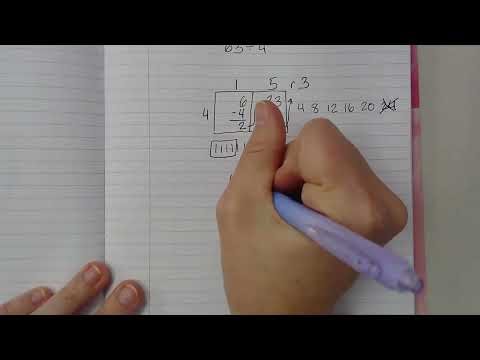 63 ÷ 4
1 5 r 3
4 6 23 4 8 12 16 20
-4
2